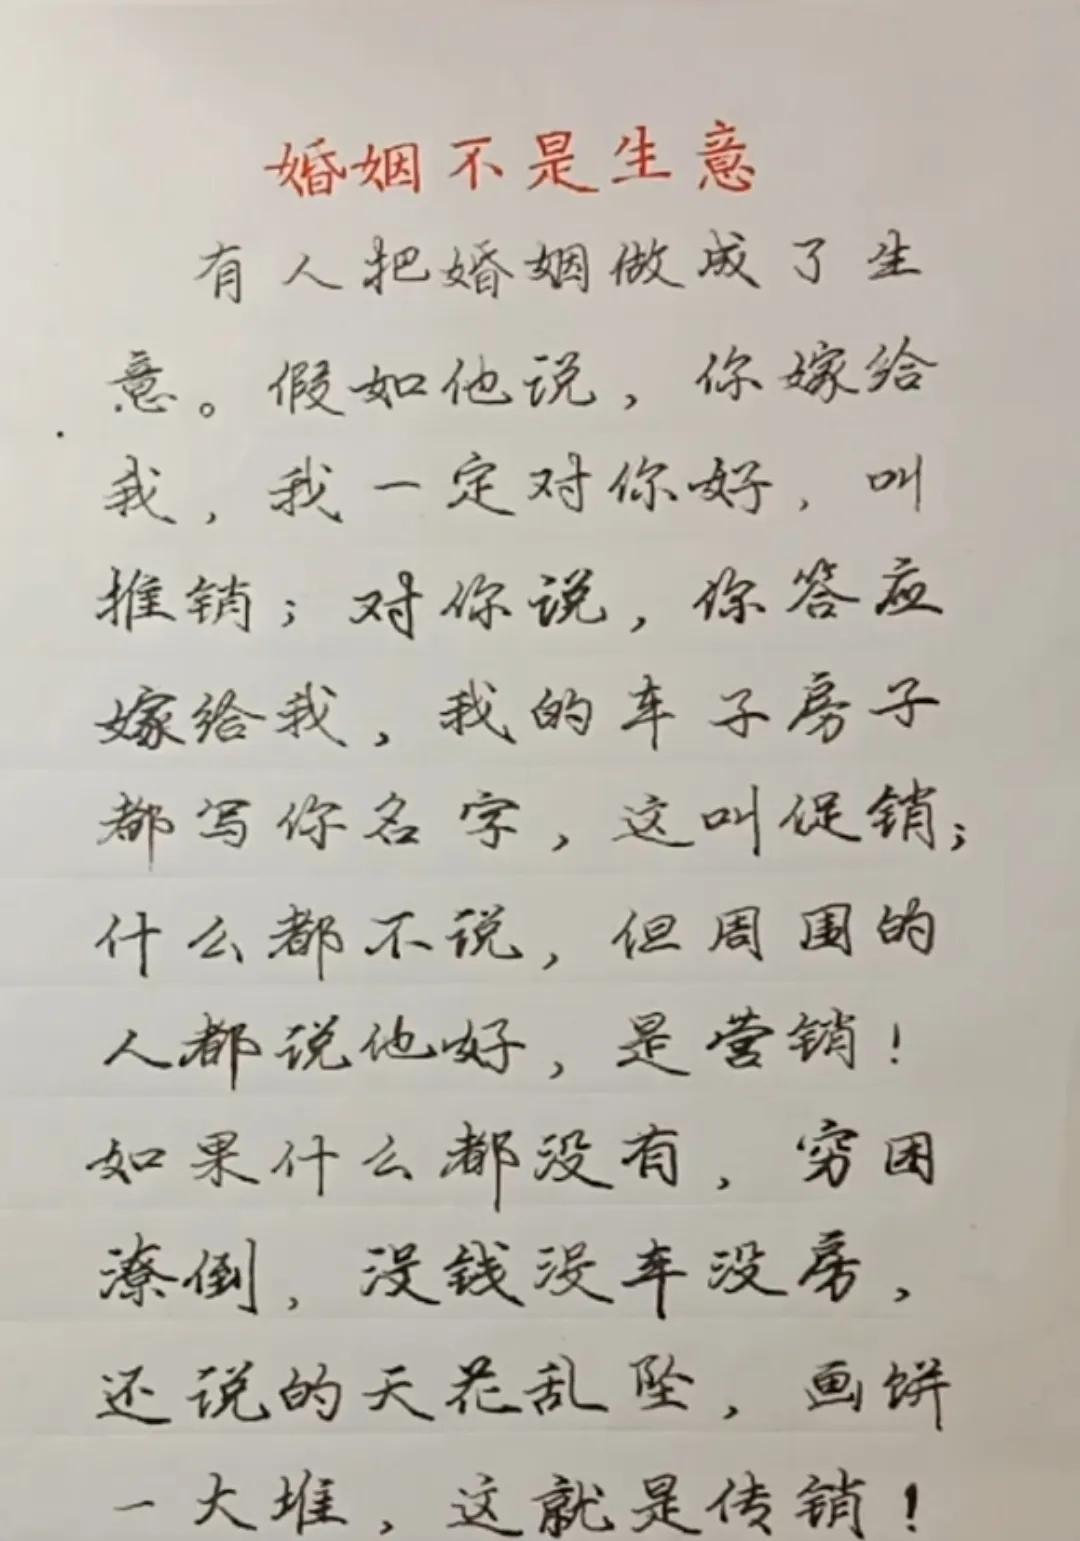 婚姻不是生意
有人把婚姻做成了生
意。假如他说，你嫁给
我，我一定对你好，叫
推销；对你说，你答应
嫁给我，我的车子房子
都写你名字，这叫促销；
什么都不说，但周围的
人都说他好，是营销！
如果什么都没有，穷困
潦倒，没钱没车没房，
还说的天花乱坠，画饼
一大堆，这就是传销！